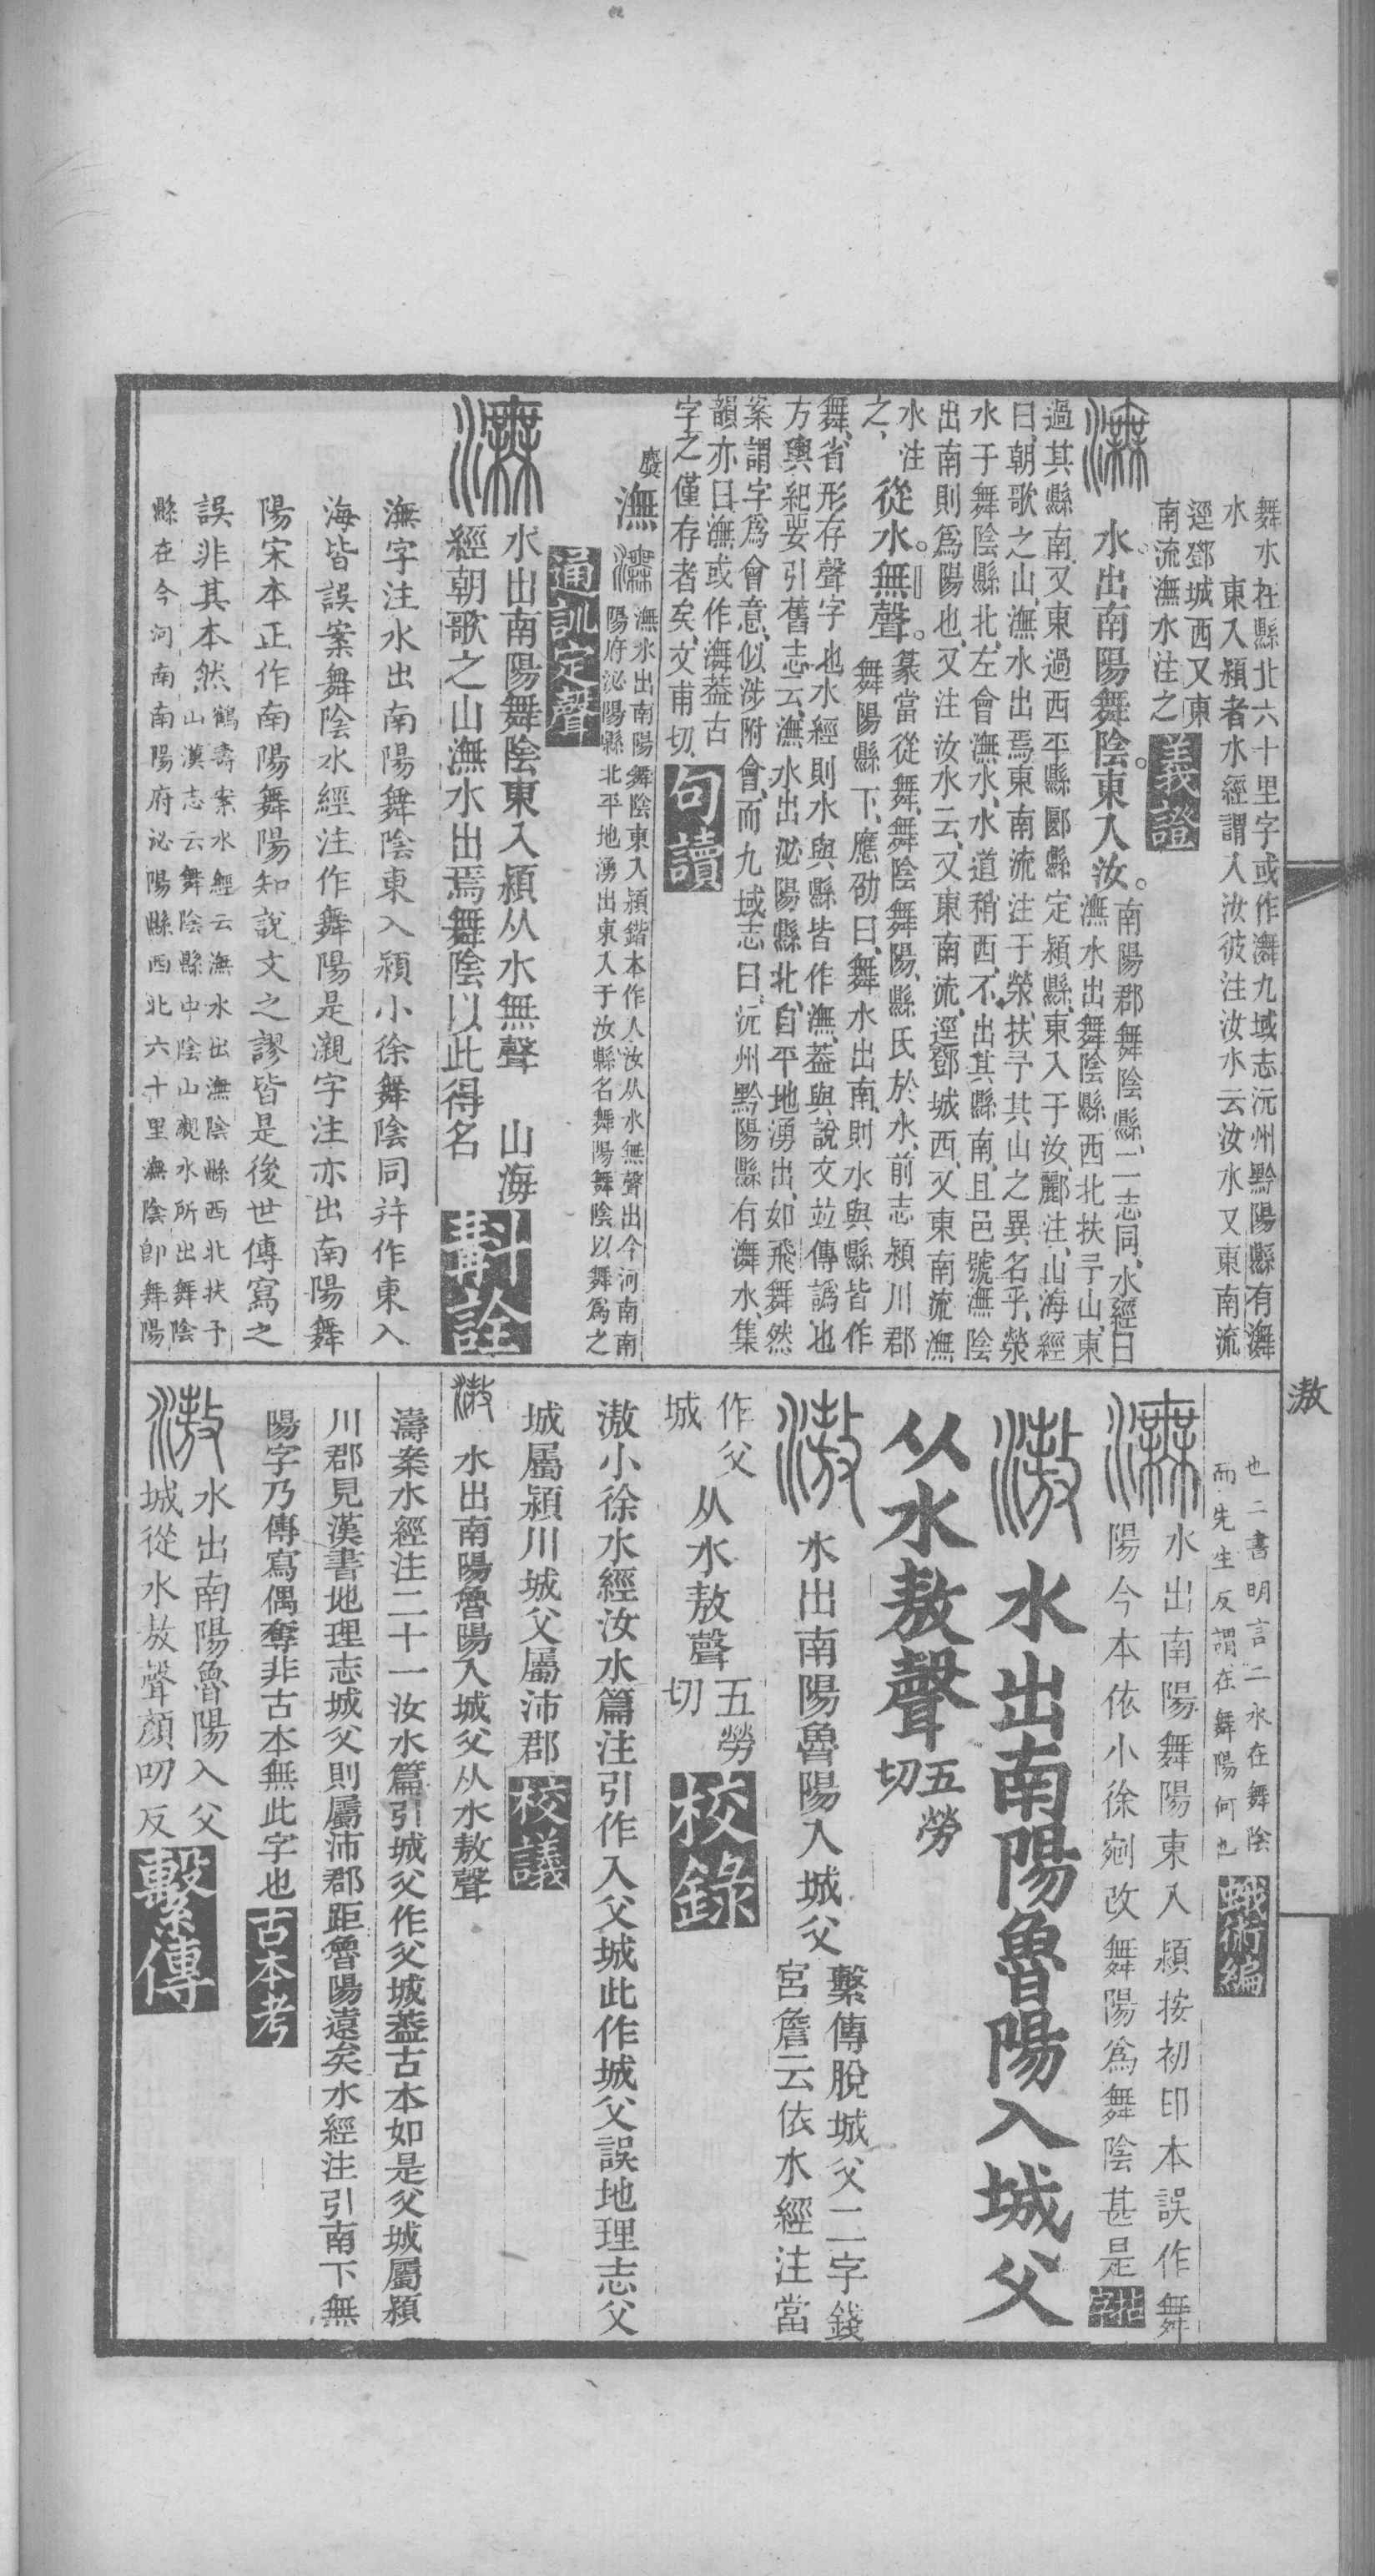 舞水在縣北六十里字或作潕九域志沅州黔陽縣有潕
水　東入潁者水經謂入汝彼注汝水云汝水又東南流
逕鄧城西又東
南流潕水注之義證
水出南陽舞陰東入汝。南陽郡舞陰縣、二志同、水經曰
潕水出舞陰縣西北扶予山、東
過其縣南、又東過西平縣郾縣定潁縣、東入于汝、酈注、山海經
曰、朝歌之山、潕水出焉、東南流注于滎、扶予其山之異名乎、滎
水于舞陰縣北、左會潕水、水道稍西、不出其縣南、且邑號潕陰
出南則爲陽也、又注汝水云、又東南流、逕鄧城西、又東南流潕
水注
之、從水。無聲。篆當從舞、舞陰舞陽、縣氏於水、前志潁川郡
舞陽縣下、應劭曰、舞水出南、則水與縣皆作
舞、省形存聲字也、水經則水與縣皆作潕、葢與說文竝傳譌也
方輿紀要引舊志云、潕水出泌陽縣北、自平地湧出、如飛舞然
案謂字爲會意、似涉附會、而九域志曰、沅州黔陽縣有潕水、集
韻亦曰潕或作潕葢古
字之僅存者矣、文甫切、句讀
潕 潕水出南陽舞陰東入潁鍇本作入汝从水無聲出今河南南
陽府泌陽縣北平地湧出東入于汝縣名舞陽舞陰以舞爲之
通訓定聲
水出南陽舞陰東入潁从水無聲　山海
經朝歌之山潕水出焉舞陰以此得名斠詮
潕字注水出南陽舞陰東入潁小徐舞陰同幷作東入
海皆誤案舞陰水經注作舞陽是瀙字注亦出南陽舞
陽宋本正作南陽舞陽知說文之謬皆是後世傳寫之
誤非其本然鶴壽案水經云潕水出潕陰縣西北扶予
山漢志云舞陰縣中陰山瀙水所出舞陰
縣在今河南南陽府泌陽縣西北六十里潕陰卽舞陽
滶
也二書明言二水在舞陰
而先生反謂在舞陽何也蛾術編
水出南陽舞陽東入潁按初印本誤作舞
陽今本依小徐剜改舞陽爲舞陰甚是
水出南陽魯陽入城父
从水敖聲五勞
切
水出南陽魯陽入城父繫傳脫城父二字錢
宮詹云依水經注當
作父
城从水敖聲五勞
切校錄
滶小徐水經汝水篇注引作入父城此作城父誤地理志父
城屬潁川城父屬沛郡校議
水出南陽魯陽入城父从水敖聲
濤案水經注二十一汝水篇引城父作父城葢古本如是父城屬潁
川郡見漢書地理志城父則屬沛郡距魯陽遠矣水經注引南下無
陽字乃傳寫偶奪非古本無此字也古本考
水出南陽魯陽入父
城從水敖聲顏叨反繫傳